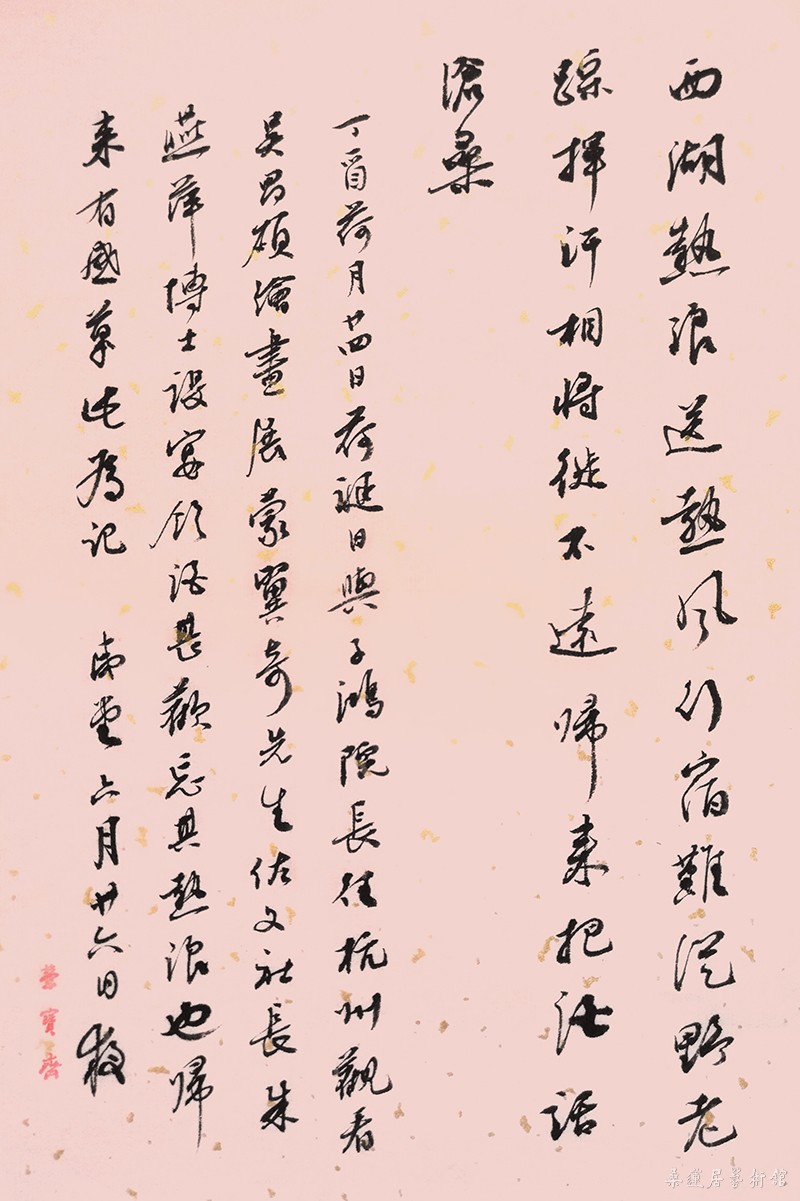 西湖熱浪送熱風行宿難從野老
踪揮汗相將徙不遠歸來把酒話
滄桑
丁酉荷月廿四日荷誕日與子鴻院長往杭州觀看
吴昌碩繪畫展蒙翼奇先生佐文社長朱
燕萍博士設宴領活甚歡忘其熱浪也歸
来有感草此為記 六月廿六日
榮寶齋
桑蓮居藝術館